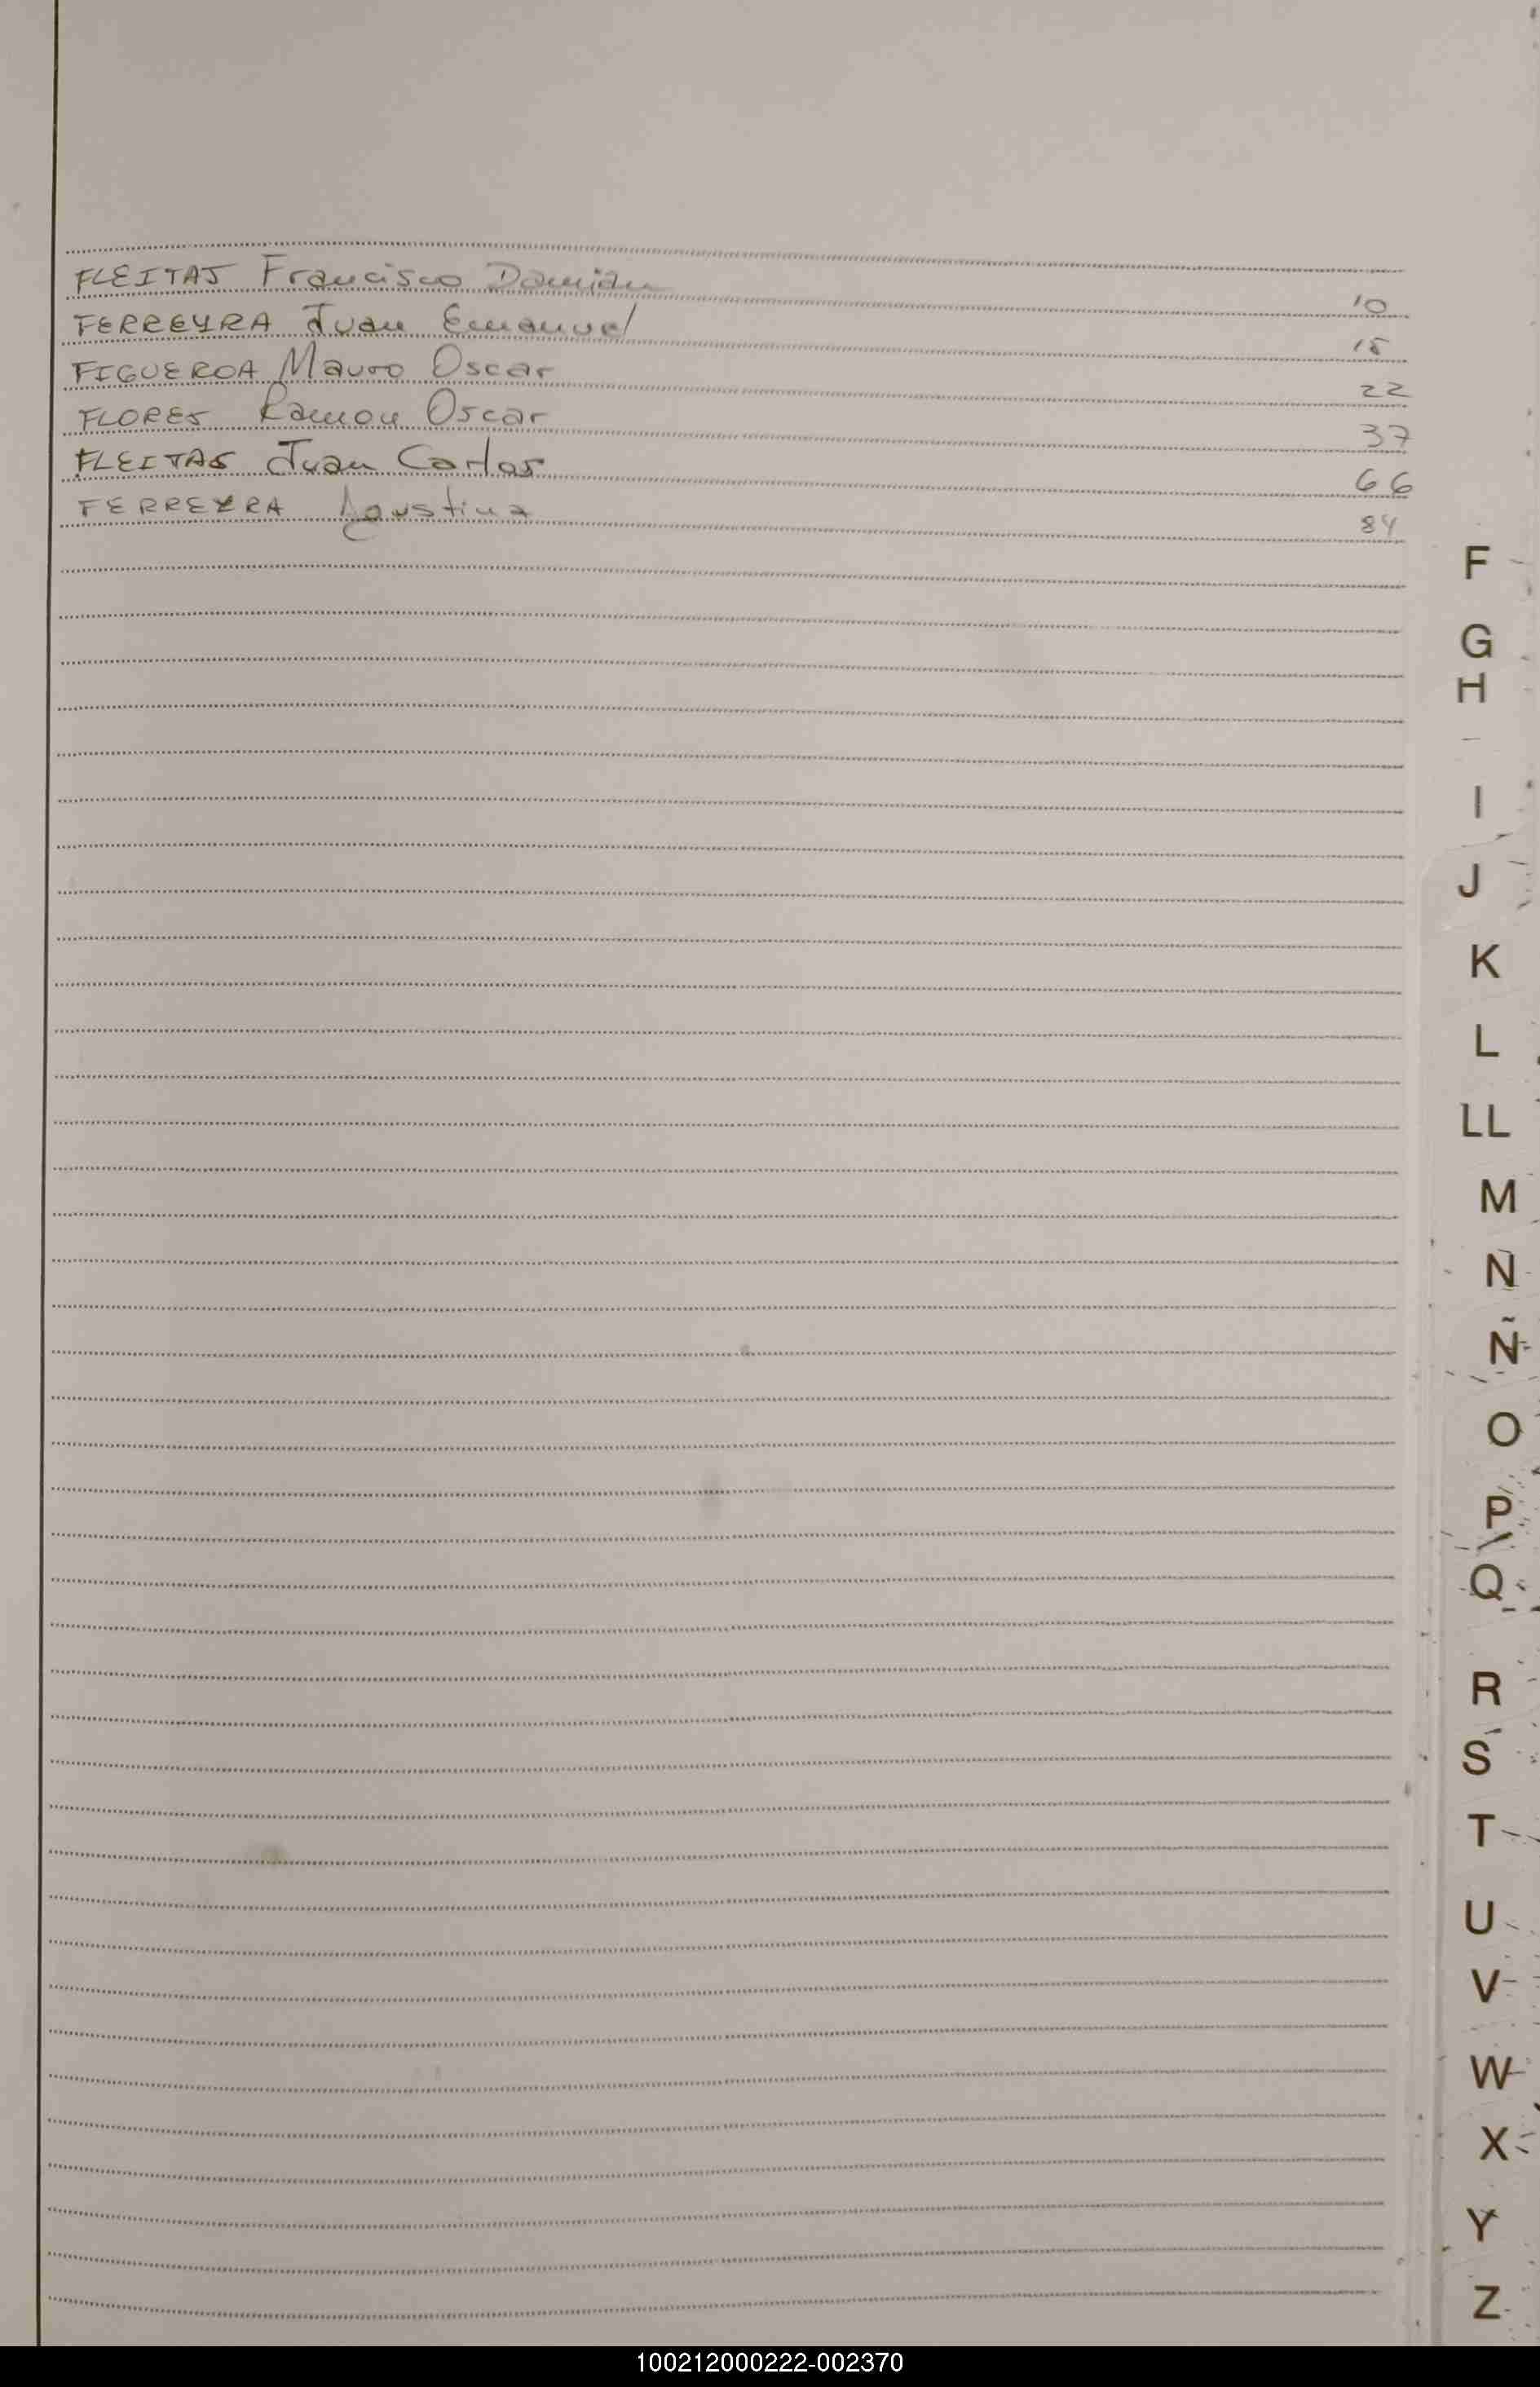 FLEITAS Francisco Damian 10
FERREYRA Juan Emanuel 15
FIGUEROA Mauro Oscar 22
FLORES Ramon Oscar 37
FLEITAS Juan Carlos 66
FERREYRA Agustina 84
F
G
H
I
J
K
L
LL
M
N
Ñ
O
P
Q
R
S
T
U
V
W
X
Y
Z
100212000222-002370